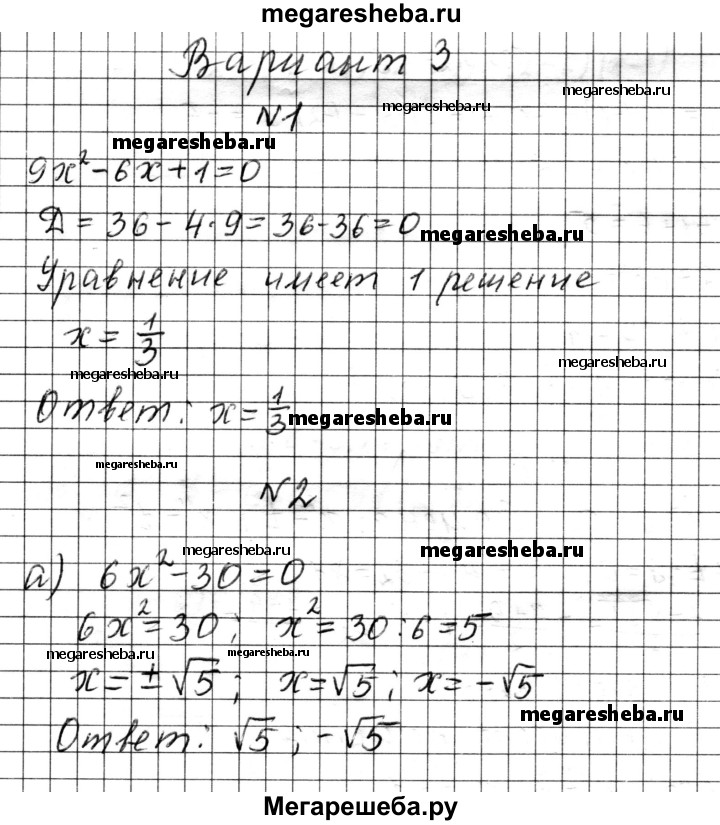 megaresheba.ru
Вариант 3
megaresheba.ru
megaresheba.ru
N1
megaresheba.ru
9x² - 6x + 1 = 0
Д = 36 - 4·9 = 36 - 36 = 0
megaresheba.ru
Уравнение имеет 1 решение
x = 1/3
megaresheba.ru
megaresheba.ru
Ответ: x = 1/3
megaresheba.ru
megaresheba.ru
N2
megaresheba.ru
megaresheba.ru
а) 6x² - 30 = 0
6x² = 30; x² = 30 : 6 = 5
megaresheba.ru
megaresheba.ru
x = ± √5; x = √5; x = - √5
megaresheba.ru
Ответ: √5; -√5
Мегарешеба.ру